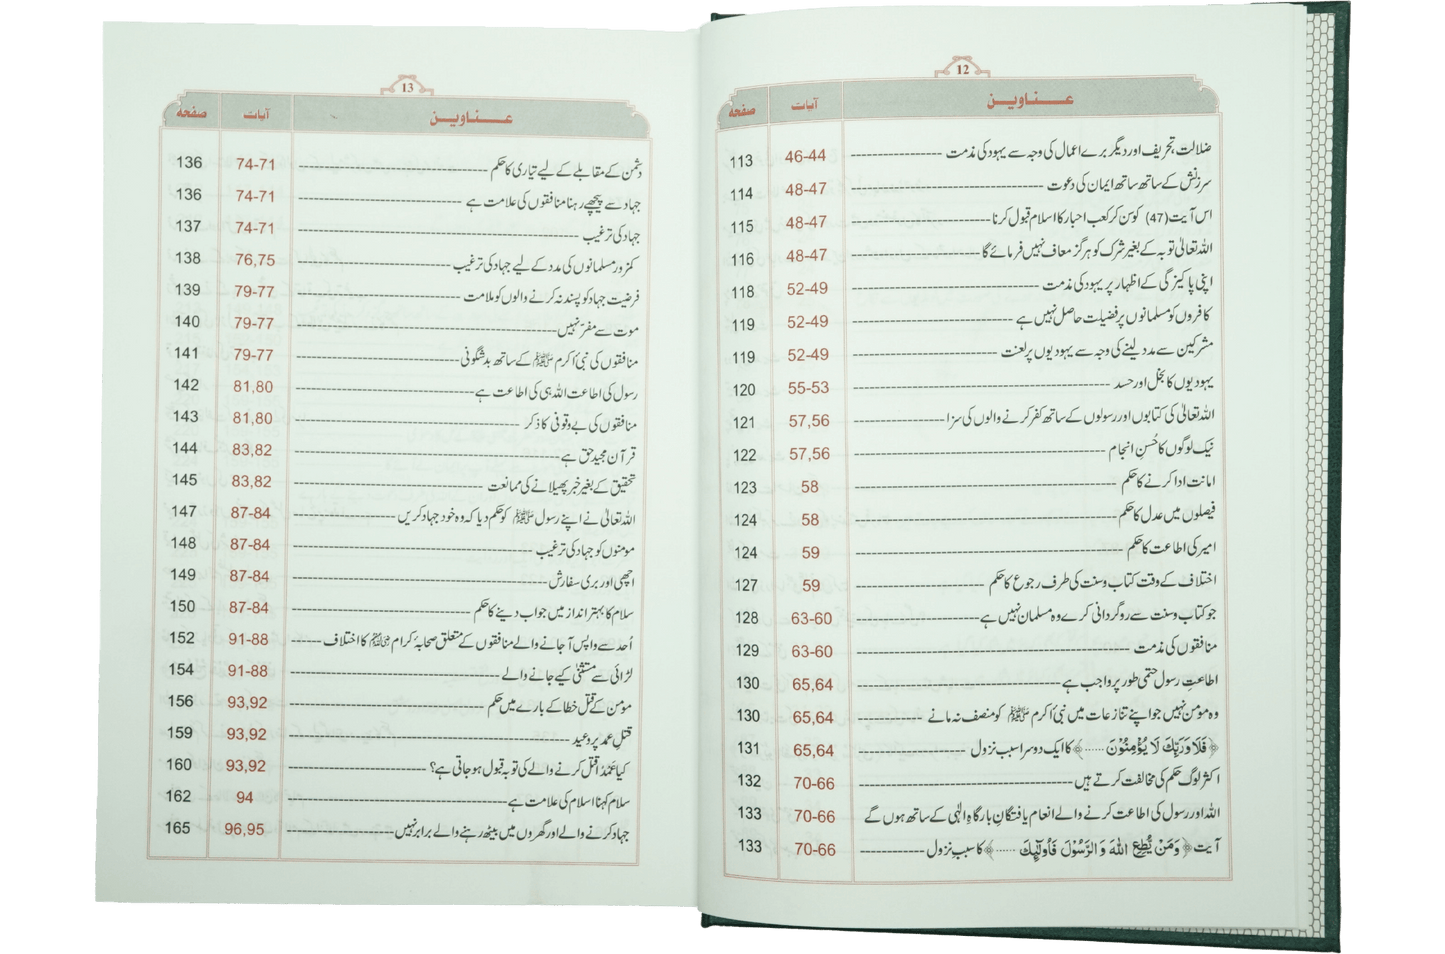 12
عناوین آیات صفحہ
ضلالت، تحریف اور دیگر برے اعمال کی وجہ سے یہود کی مذمت ---------------- 46-44 113
سرزنش کے ساتھ ساتھ ایمان کی دعوت ---------------- 48-47 114
اس آیت (47) کو سن کر کعب احبار کا اسلام قبول کرنا ---------------- 48-47 115
اللہ تعالیٰ توبہ کے بغیر شرک کو ہرگز معاف نہیں فرمائے گا ---------------- 48-47 116
اپنی پاکیزگی کے اظہار پر یہود کی مذمت ---------------- 52-49 118
کافروں کو مسلمانوں پر فضیلت حاصل نہیں ہے ---------------- 52-49 119
مشرکین سے مدد لینے کی وجہ سے یہودیوں پر لعنت ---------------- 52-49 119
یہودیوں کا بخل اور حسد ---------------- 55-53 120
اللہ تعالیٰ کی کتابوں اور رسولوں کے ساتھ کفر کرنے والوں کی سزا ---------------- 57,56 121
نیک لوگوں کا حُسنِ انجام ---------------- 57,56 122
امانت ادا کرنے کا حکم ---------------- 58 123
فیصلوں میں عدل کا حکم ---------------- 58 124
امیر کی اطاعت کا حکم ---------------- 59 124
اختلاف کے وقت کتاب و سنت کی طرف رجوع کا حکم ---------------- 59 127
جو کتاب و سنت سے روگردانی کرے وہ مسلمان نہیں ہے ---------------- 63-60 128
منافقوں کی مذمت ---------------- 63-60 129
اطاعتِ رسول حتمی طور پر واجب ہے ---------------- 65,64 130
وہ مومن نہیں جو اپنے تنازعات میں نبیٔ اکرم ﷺ کو منصف نہ مانے ---------------- 65,64 130
﴿فَلَا وَرَبِّكَ لَا يُؤْمِنُوْنَ ......﴾ کا ایک دوسرا سبب نزول ---------------- 65,64 131
اکثر لوگ حکم کی مخالفت کرتے ہیں ---------------- 70-66 132
اللہ اور رسول کی اطاعت کرنے والے انعام یافتگانِ بارگاہِ الٰہی کے ساتھ ہوں گے 70-66 133
آیت ﴿وَمَنْ يُّطِعِ اللّٰهَ وَالرَّسُوْلَ فَاُولٰٓئِكَ ......﴾ کا سببِ نزول ---------------- 70-66 133
13
عناوین آیات صفحہ
دشمن کے مقابلے کے لیے تیاری کا حکم ---------------- 74-71 136
جہاد سے پیچھے رہنا منافقوں کی علامت ہے ---------------- 74-71 136
جہاد کی ترغیب ---------------- 74-71 137
کمزور مسلمانوں کی مدد کے لیے جہاد کی ترغیب ---------------- 76,75 138
فرضیت جہاد کو پسند نہ کرنے والوں کو ملامت ---------------- 79-77 139
موت سے مفر نہیں ---------------- 79-77 140
منافقوں کی نبیٔ اکرم ﷺ کے ساتھ بدشگونی ---------------- 79-77 141
رسول کی اطاعت اللہ ہی کی اطاعت ہے ---------------- 81,80 142
منافقوں کی بے وقوفی کا ذکر ---------------- 81,80 143
قرآن مجید حق ہے ---------------- 83,82 144
تحقیق کے بغیر خبر پھیلانے کی ممانعت ---------------- 83,82 145
اللہ تعالیٰ نے اپنے رسول ﷺ کو حکم دیا کہ وہ خود جہاد کریں ---------------- 87-84 147
مومنوں کو جہاد کی ترغیب ---------------- 87-84 148
اچھی اور بری سفارش ---------------- 87-84 149
سلام کا بہتر انداز میں جواب دینے کا حکم ---------------- 87-84 150
اُحد سے واپس آ جانے والے منافقوں کے متعلق صحابۂ کرام کا اختلاف ------ 91-88 152
لڑائی سے مستثنیٰ کیے جانے والے ---------------- 91-88 154
مومن کے قتل خطا کے بارے میں حکم ---------------- 93,92 156
قتلِ عمد پر وعید ---------------- 93,92 159
کیا عَمْدًا قتل کرنے والے کی توبہ قبول ہو جاتی ہے؟ ---------------- 93,92 160
سلام کہنا اسلام کی علامت ہے ---------------- 94 162
جہاد کرنے والے اور گھروں میں بیٹھ رہنے والے برابر نہیں ---------------- 96,95 165